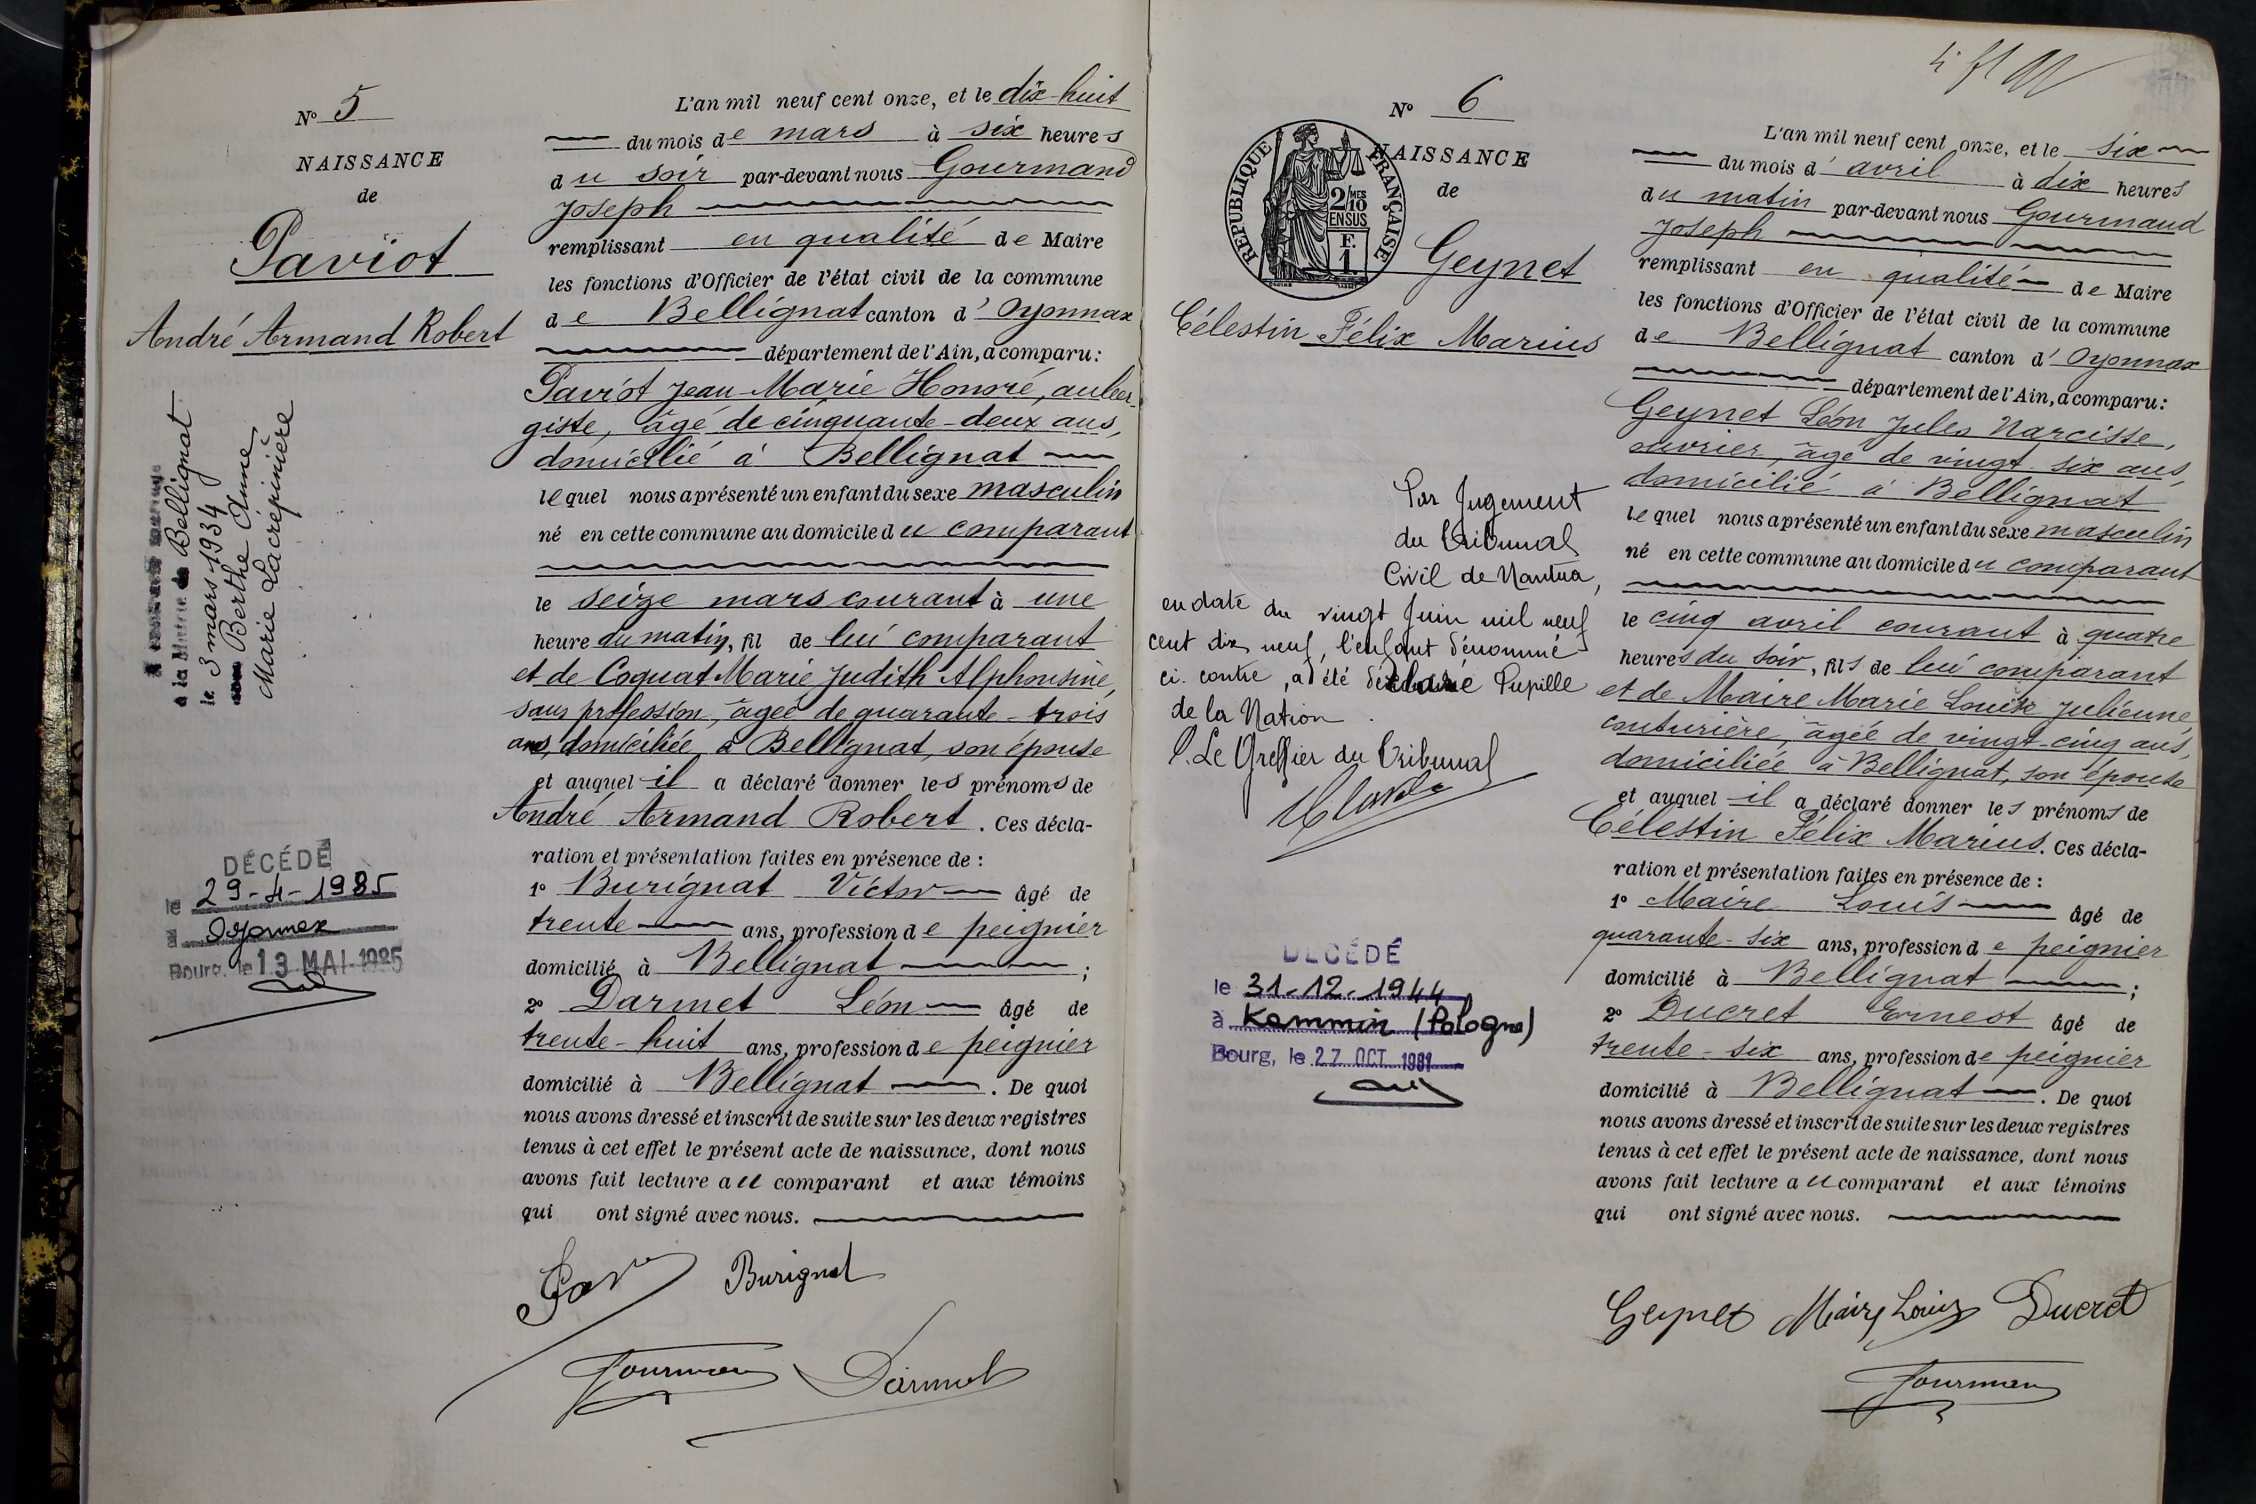 N° 5
NAISSANCE
de
Paviot
André Armand Robert
a la Mairie de Bellignat
le 3 mars 1934
avec Berthe Anne
Marie Lacrépinière
DÉCÉDÉ
le 29-4-1985
à Oyonnax
Bourg, le 13 MAI 1985
L'an mil neuf cent onze, et le dix-huit
du mois de mars à six heures
du soir par-devant nous Gourmand
Joseph
remplissant en qualité de Maire
les fonctions d'Officier de l'état civil de la commune
de Bellignat canton d'Oyonnax
département de l'Ain, a comparu :
Paviot Jean Marie Honoré, auber-
giste, âgé de cinquante-deux ans,
domicilié à Bellignat
lequel nous a présenté un enfant du sexe masculin
né en cette commune au domicile du comparant
le seize mars courant à une
heure du matin, fil de lui comparant
et de Coquat Marie Judith Alphonsine,
sans profession, âgée de quarante-trois
ans, domiciliée à Bellignat, son épouse
et auquel il a déclaré donner les prénoms de
André Armand Robert. Ces décla-
ration et présentation faites en présence de :
1° Burignat Victor âgé de
trente ans, profession de peignier
domicilié à Bellignat ;
2° Darmet Léon âgé de
trente-huit ans, profession de peignier
domicilié à Bellignat. De quoi
nous avons dressé et inscrit de suite sur les deux registres
tenus à cet effet le présent acte de naissance, dont nous
avons fait lecture au comparant et aux témoins
qui ont signé avec nous.
Burignat
Gourmand
Darmet
N° 6
NAISSANCE
de
RÉPUBLIQUE FRANÇAISE
2/10 MES
EN SUS
F.
1
Geynet
Célestin Félix Marius
Par Jugement
du Tribunal
Civil de Nantua,
en date du vingt Juin mil neuf
cent dix neuf, l'enfant dénommé
ci-contre, a été déclaré Pupille
de la Nation
P. Le Greffier du Tribunal
DÉCÉDÉ
le 31-12-1944
à Kammin (Pologne)
Bourg, le 27 OCT. 1981
L'an mil neuf cent onze, et le six
du mois d'avril à dix heures
du matin par-devant nous Gourmand
Joseph
remplissant en qualité de Maire
les fonctions d'Officier de l'état civil de la commune
de Bellignat canton d'Oyonnax
département de l'Ain, a comparu :
Geynet Léon Jules Narcisse,
ouvrier, âgé de vingt-six ans,
domicilié à Bellignat
lequel nous a présenté un enfant du sexe masculin
né en cette commune au domicile du comparant
le cinq avril courant à quatre
heures du soir, fils de lui comparant
et de Maire Marie Louise Julienne,
couturière, âgée de vingt-cinq ans,
domiciliée à Bellignat, son épouse
et auquel il a déclaré donner les prénoms de
Célestin Félix Marius. Ces décla-
ration et présentation faites en présence de :
1° Maire Louis âgé de
quarante-six ans, profession de peignier
domicilié à Bellignat ;
2° Ducret Ernest âgé de
trente-six ans, profession de peignier
domicilié à Bellignat. De quoi
nous avons dressé et inscrit de suite sur les deux registres
tenus à cet effet le présent acte de naissance, dont nous
avons fait lecture au comparant et aux témoins
qui ont signé avec nous.
Geynet Maire Louis Ducret
Gourmand